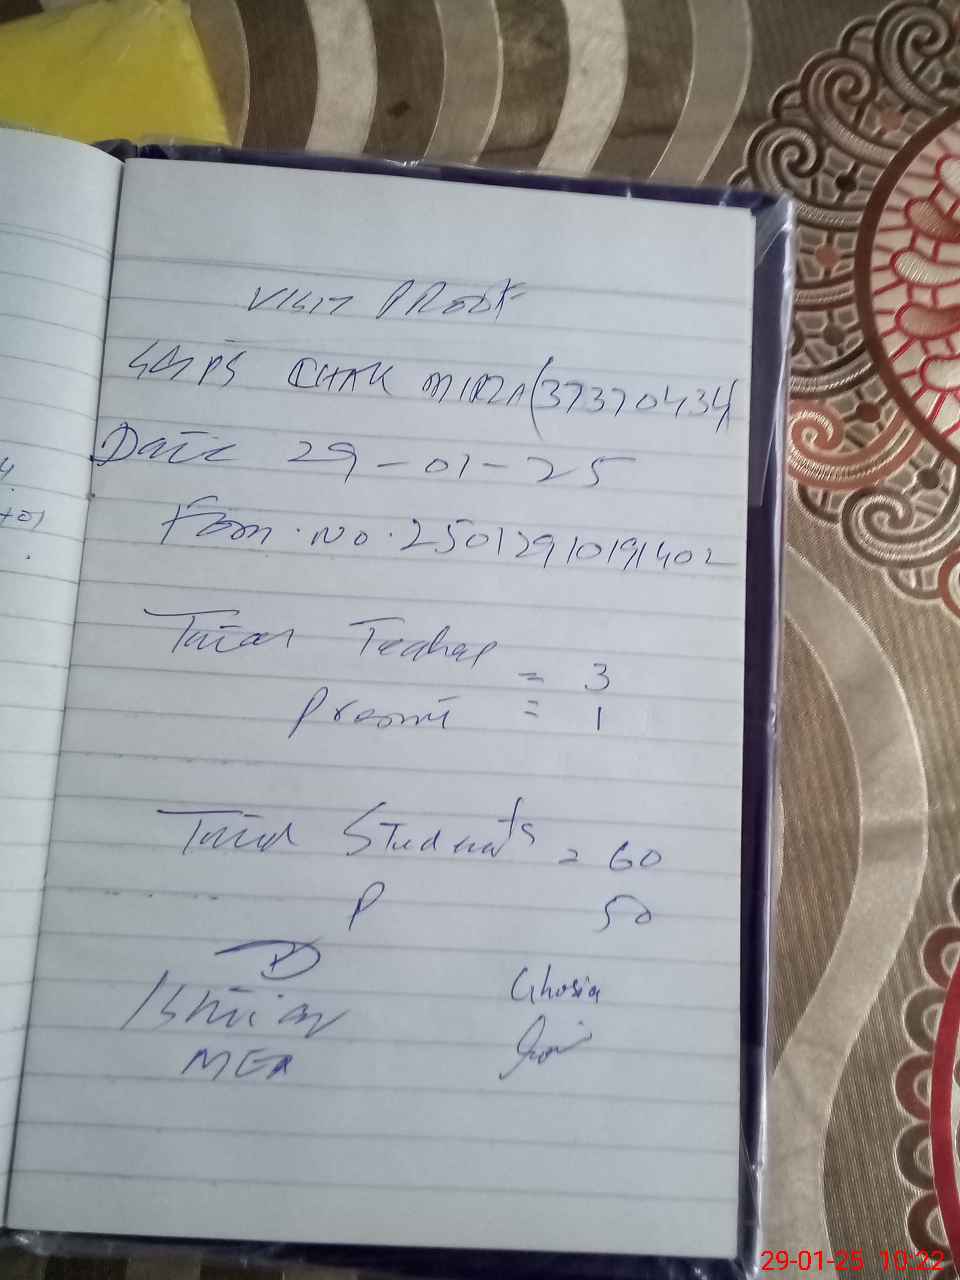 VISIT PROOF
GMPS CHAK MIRZA (37370434)
Date 29-01-25
Form. No. 25012910191402
Total Teacher = 3
Present = 1
Total Students = 60
P 50
Ghosia
Ishtiaq
MEA
4
+01
29-01-25 10:22